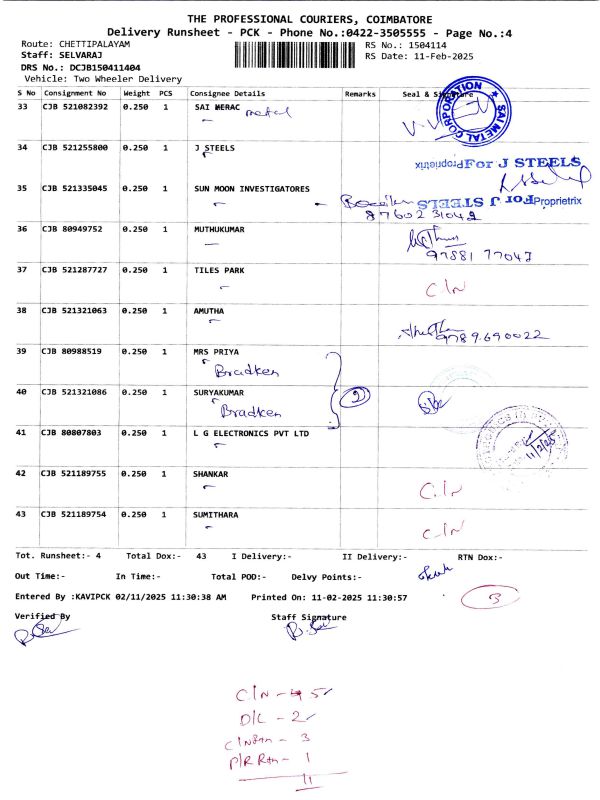 THE PROFESSIONAL COURIERS, COIMBATORE
Delivery Runsheet - PCK - Phone No.:0422-3505555 - Page No.:4
Route: CHETTIPALAYAM RS No.: 1504114
Staff: SELVARAJ RS Date: 11-Feb-2025
DRS No.: DCJB150411404
Vehicle: Two Wheeler Delivery
S No Consignment No Weight PCS Consignee Details Remarks Seal & Signature
33 CJB 521082392 0.250 1 SAI MERAC metal
SAI METAL CORPORATION
34 CJB 521255800 0.250 1 J STEELS
For J STEELS
Proprietrix
35 CJB 521335045 0.250 1 SUN MOON INVESTIGATORES
For J STEELS
Proprietrix
8760231042
36 CJB 80949752 0.250 1 MUTHUKUMAR
97881 77047
37 CJB 521287727 0.250 1 TILES PARK
C/N
38 CJB 521321063 0.250 1 AMUTHA
9789690022
39 CJB 80988519 0.250 1 MRS PRIYA
Bradken
40 CJB 521321086 0.250 1 SURYAKUMAR 2
Bradken
41 CJB 80807803 0.250 1 L G ELECTRONICS PVT LTD
11/2/25
42 CJB 521189755 0.250 1 SHANKAR
C/N
43 CJB 521189754 0.250 1 SUMITHARA
C/N
Tot. Runsheet:- 4 Total Dox:- 43 I Delivery:- II Delivery:- RTN Dox:-
Out Time:- In Time:- Total POD:- Delvy Points:-
Entered By :KAVIPCK 02/11/2025 11:30:38 AM Printed On: 11-02-2025 11:30:57
3
Verified By Staff Signature
C/N - 5
D/L - 2
C/N Rtn - 3
P/R Rtn - 1
11